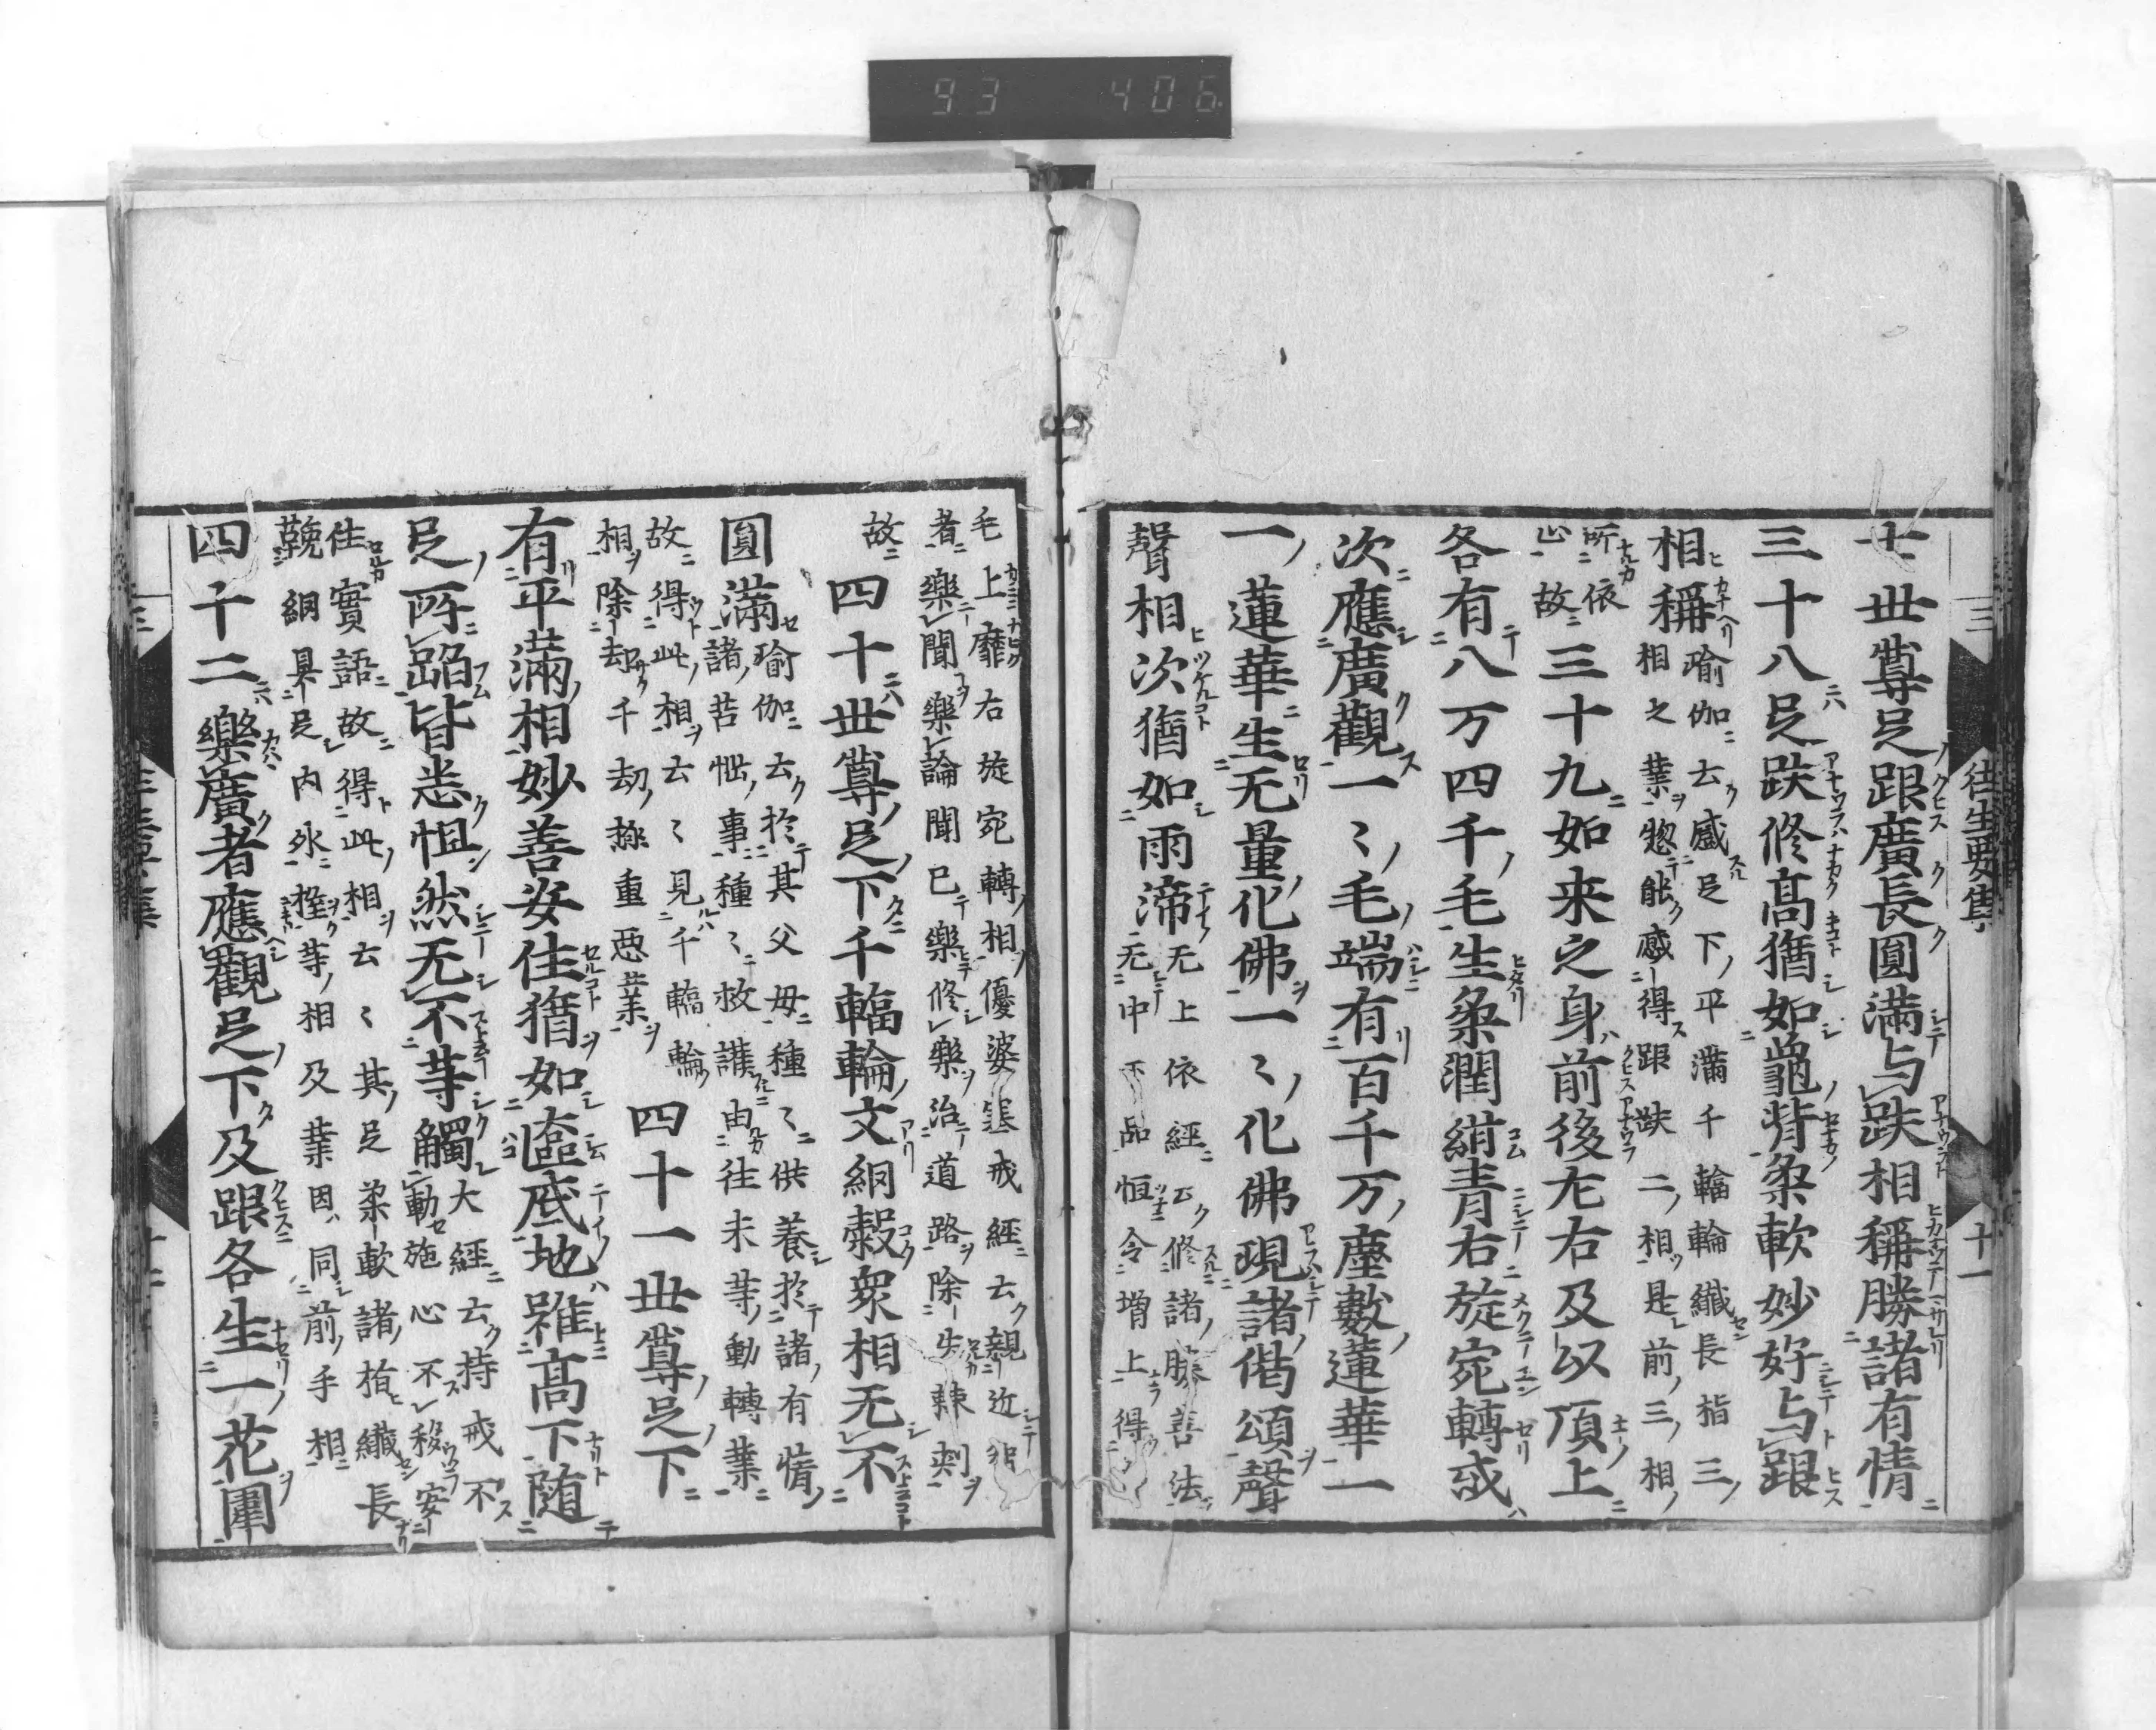 93 406
三 往生要集 十一
七世尊足跟廣長圓滿与趺相稱勝諸有情
三十八足趺修高猶如龜背柔軟妙好与跟
相稱
瑜伽云感足下平滿千輻輪纖長指三
相之業惣能感得跟趺二相是前三相
所依
止故
三十九如来之身前後左右及以頂上
各有八万四千毛生柔潤紺青右旋宛轉或
次應廣觀一〻毛端有百千万塵數蓮華一
一蓮華生无量化佛一〻化佛現諸偈頌聲
聲相次猶如雨渧
无上依經云修諸勝善法
无中下品恒令増上得
毛上靡右旋宛轉相優婆塞戒經云親近智
者樂聞樂論聞已樂修樂治道路除去棘刾
故
四十世尊足下千輻輪文網轂衆相无不
圓滿
瑜伽云於其父母種〻供養於諸有情
諸苦惱事種〻救護由往来等動轉業
故得此相云〻見千輻輪
相除却千劫極重悪業
四十一世尊足下
有平滿相妙善安住猶如奩底地雖高下随
足所蹈皆悉怛然无不等觸
大經云持戒不
動施心不移安
住實語故得此相云〻其足柔軟諸指纖長
鞔網具足内外握等相及業因同前手相
四十二樂廣者應觀足下及跟各生一花圍